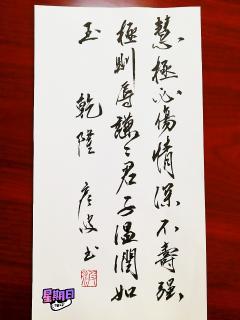 慧極必傷情深不壽強
極則辱謙謙君子溫潤如
玉 乾隆 彦波书
星期日